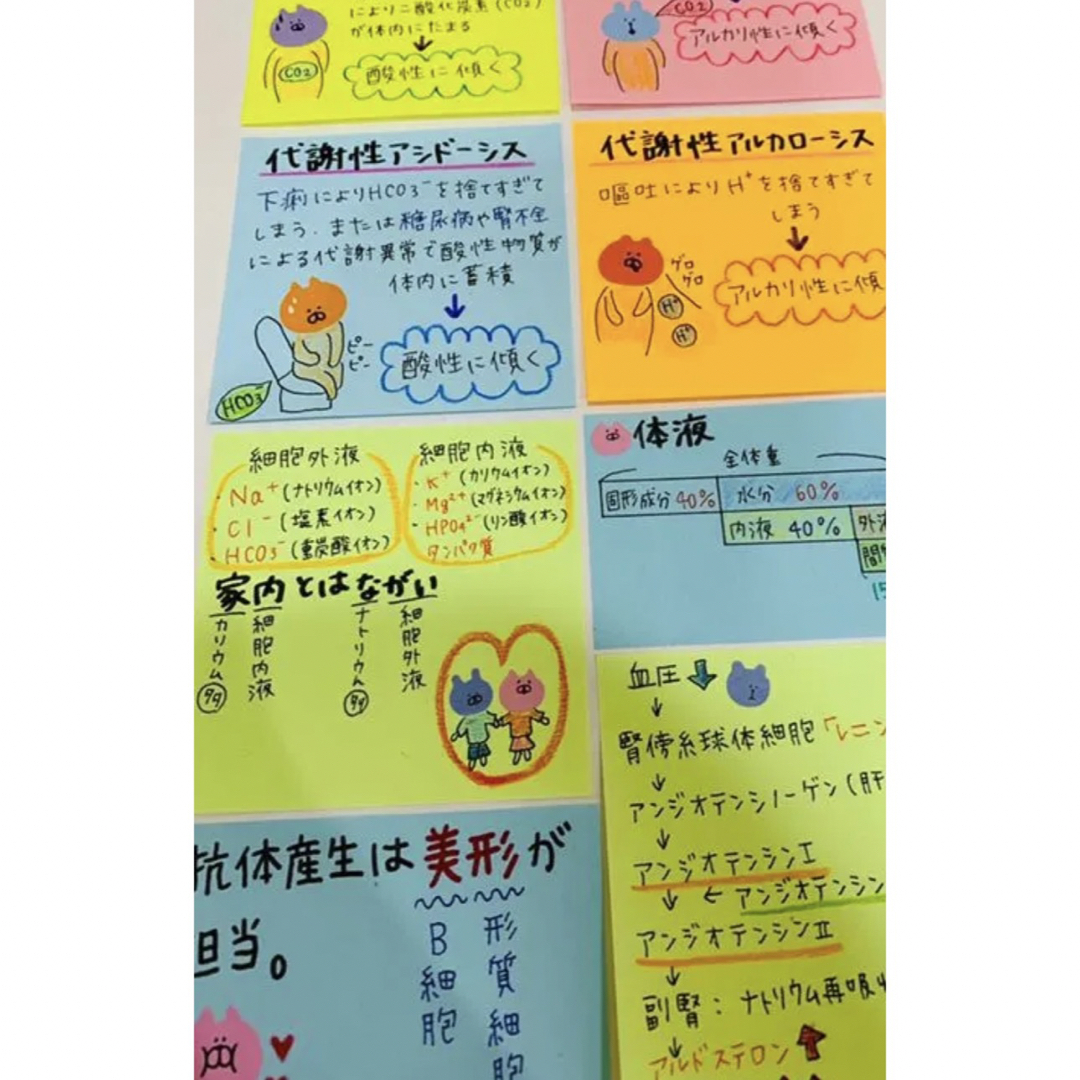 により二酸化炭素(CO2)
が体内にたまる
↓
CO2
酸性に傾く
CO2
アルカリ性に傾く
代謝性アシドーシス
下痢によりHCO3⁻を捨てすぎて
しまう．または糖尿病や腎不全
による代謝異常で酸性物質が
体内に蓄積
↓
ピー
ピー
酸性に傾く
HCO3⁻
代謝性アルカローシス
嘔吐によりH⁺を捨てすぎて
しまう
↓
ゲロ
ゲロ
H⁺
H⁺
アルカリ性に傾
細胞外液
・Na⁺(ナトリウムイオン)
・Cl⁻(塩素イオン)
・HCO3⁻(重炭酸イオン)
細胞内液
・K⁺(カリウムイオン)
・Mg²⁺(マグネシウムイオン)
・HPO4²⁻(リン酸イオン)
タンパク質
家内とはながい
カリウム多
細胞内液
ナトリウム多
細胞外液
体液
全体重
固形成分40% 水分 60%
内液 40% 外液
間
15
血圧↓
↓
腎傍糸球体細胞「レニン
↓
アンジオテンシノーゲン(肝
↓
アンジオテンシンⅠ
↓ ← アンジオテンシン
アンジオテンシンⅡ
↓
副腎：ナトリウム再吸収
↓
アルドステロン↑
抗体産生は美形が
担当。
B細胞
形質細胞